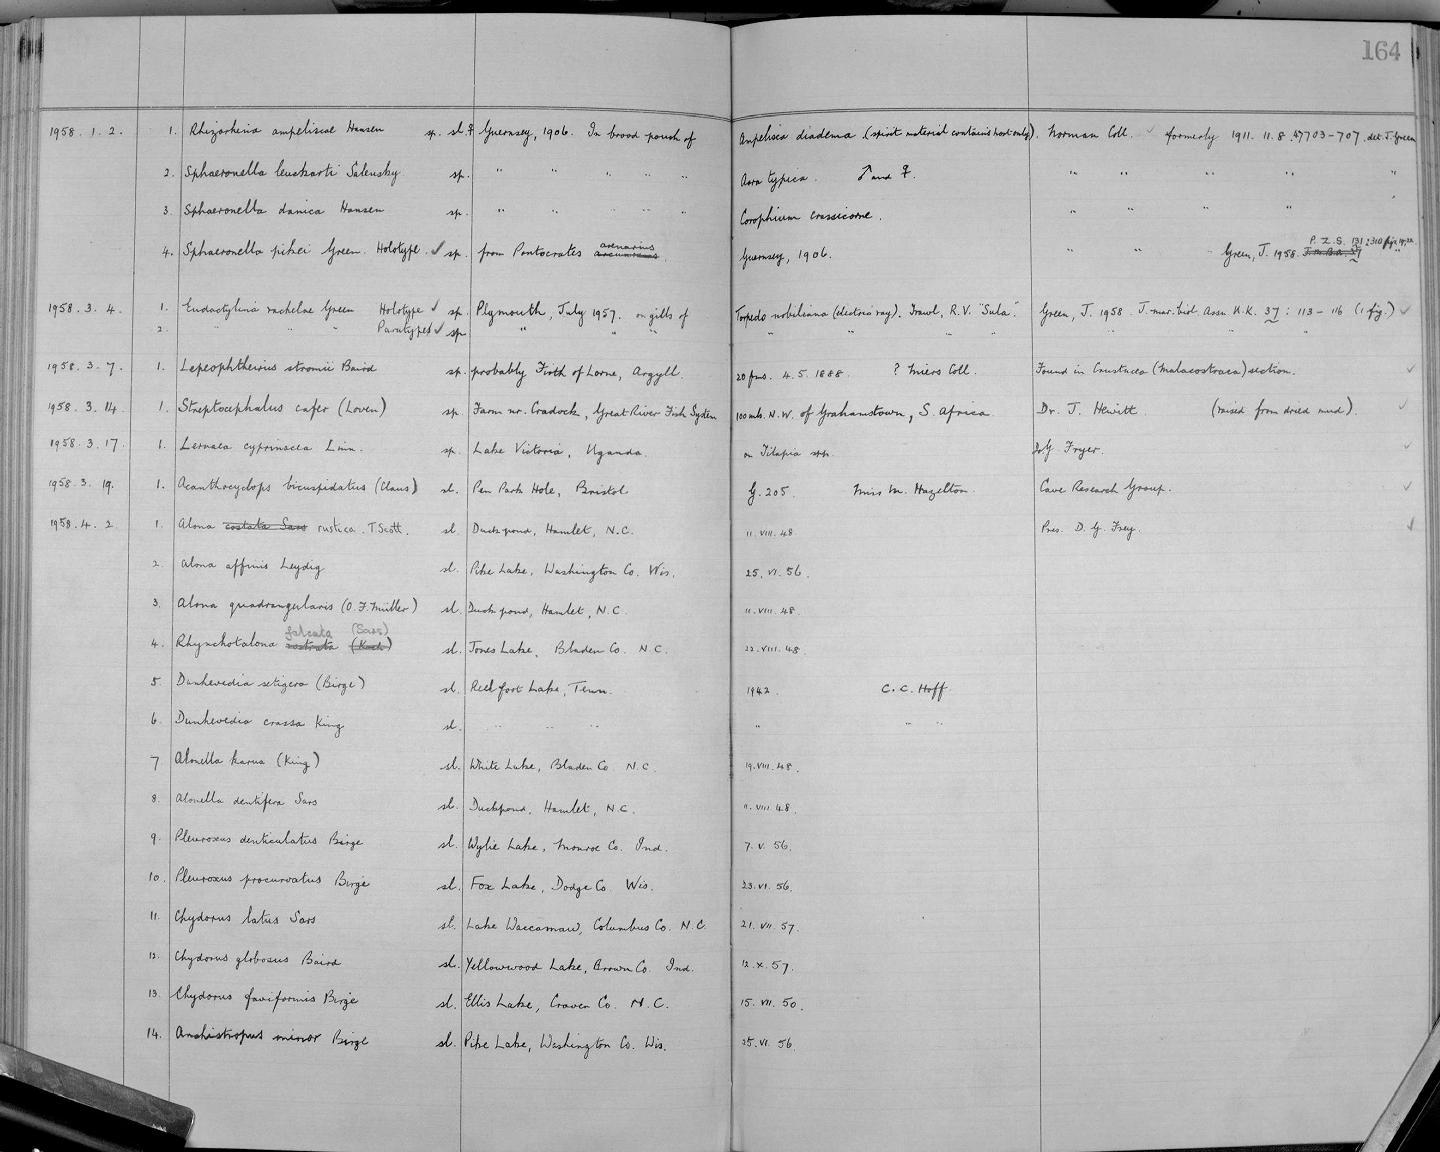 164
1958. 1. 2. 1. Rhizorhina ampeliscae Hansen sp. sl. ♀ Guernsey, 1906. In brood pouch of Ampelisca diadema (spirit material contains host only). Norman Coll. ✓ formerly 1911. 11. 8. 47703-707. det. J. Green
2. Sphaeronella leuckarti Salensky sp. " " " " " Aora typica. ♂ and ♀. " " " " "
3. Sphaeronella danica Hansen sp. " " " " " Corophium crassicorne. " " " " "
P. Z. S. 131: 310 figs 19, 22.
arenarius
4. Sphaeronella pikei Green. Holotype. ✓ sp. from Pontocrates Guernsey, 1906. " " " Green, J. 1958. J.M.B.A. 37 "
1958. 3. 4. 1. Eudactylina rachelae Green Holotype ✓ sp. Plymouth, July 1957. on gills of Torpedo nobiliana (electric ray). Trawl, R.V. "Sula". Green, J. 1958 J. mar. biol. Assn U.K. 37: 113-116 (1 fig.) ✓
2. " " " Paratypes ✓ sp. " " " " " " " " " " "
1958. 3. 7. 1. Lepeophtheirus stromii Baird sp. probably Firth of Lorne, Argyll. 20 fms. 4. 5. 1888. ? Miers Coll. Found in Crustacea (Malacostraca) section. ✓
1958. 3. 14. 1. Streptocephalus cafer (Loven) sp. Farm nr. Cradock, Great River Fish System 100 mls. N.W. of Grahamstown, S. Africa Dr. J. Hewitt (raised from dried mud). ✓
1958. 3. 17. 1. Lernaea cyprinacea Linn. sp. Lake Victoria, Uganda. on Tilapia spp. Dr G. Fryer. ✓
1958. 3. 19. 1. Acanthocyclops bicuspidatus (Claus) sl. Pen Park Hole, Bristol G. 205. Miss M. Hazelton. Cave Research Group. ✓
1958. 4. 2. 1. Alona costata Sars rustica. T. Scott. sl. Duckpond, Hamlet, N.C. 11. VIII. 48 Pres. D. G. Frey. ✓
2. Alona affinis Leydig sl. Pike Lake, Washington Co. Wis. 25. VI. 56.
3. Alona quadrangularis (O. F. Müller) sl. Duckpond, Hamlet, N.C. 11. VIII. 48.
falcata (Sars)
4. Rhynchotalona rostrata (Koch) sl. Jones Lake, Bladen Co. N.C. 22. VIII. 48.
5. Dunhevedia setigera (Birge) sl. Reelfoot Lake, Tenn. 1942. C. C. Hoff.
6. Dunhevedia crassa King sl. " " " " " "
7 Alonella karua (King) sl. White Lake, Bladen Co. N.C. 19. VIII. 48.
8. Alonella dentifera Sars sl. Duckpond, Hamlet, N.C. 11. VIII. 48.
9. Pleuroxus denticulatus Birge sl. Wylie Lake, Monroe Co. Ind. 7. V. 56.
10. Pleuroxus procurvatus Birge sl. Fox Lake, Dodge Co. Wis. 23. VI. 56.
11. Chydorus latus Sars sl. Lake Waccamaw, Columbus Co. N.C. 21. VII. 57.
12. Chydorus globosus Baird sl. Yellowwood Lake, Brown Co. Ind. 12. X. 57.
13. Chydorus faviformis Birge sl. Ellis Lake, Craven Co. N.C. 15. VII. 50.
14. Anchistropus minor Birge sl. Pike Lake, Washington Co. Wis. 25. VI. 56.